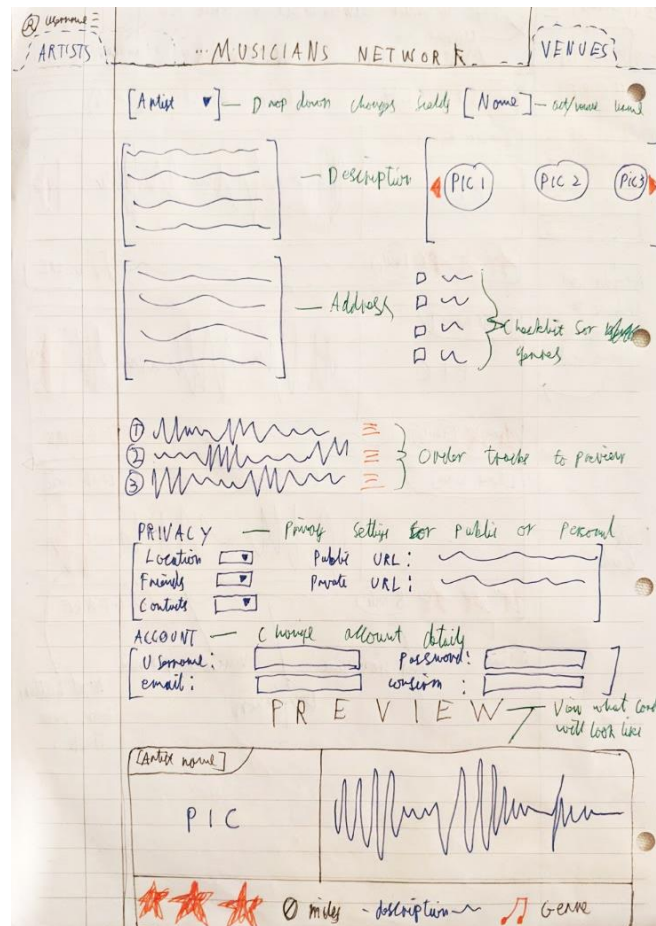 Username
ARTISTS
MUSICIANS NETWORK
VENUES
[Artist ▼] — Drop down changes fields [Name] — act/venue name
— Description
PIC 1 PIC 2 PIC3
— Address
Checklist for
genres
①
②
③
Order tracks to preview
PRIVACY — Privacy settings for public or personal
Location ▼ Public URL:
Friends ▼ Private URL:
Contacts ▼
ACCOUNT — Change account details
Username: Password:
email: confirm:
PREVIEW
— View what card
will look like
[Artist name]
PIC
0 miles - description ~ Genre